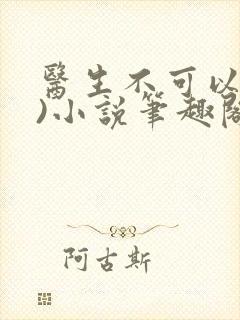 醫生不可以
)小說筆趣閣
阿古斯